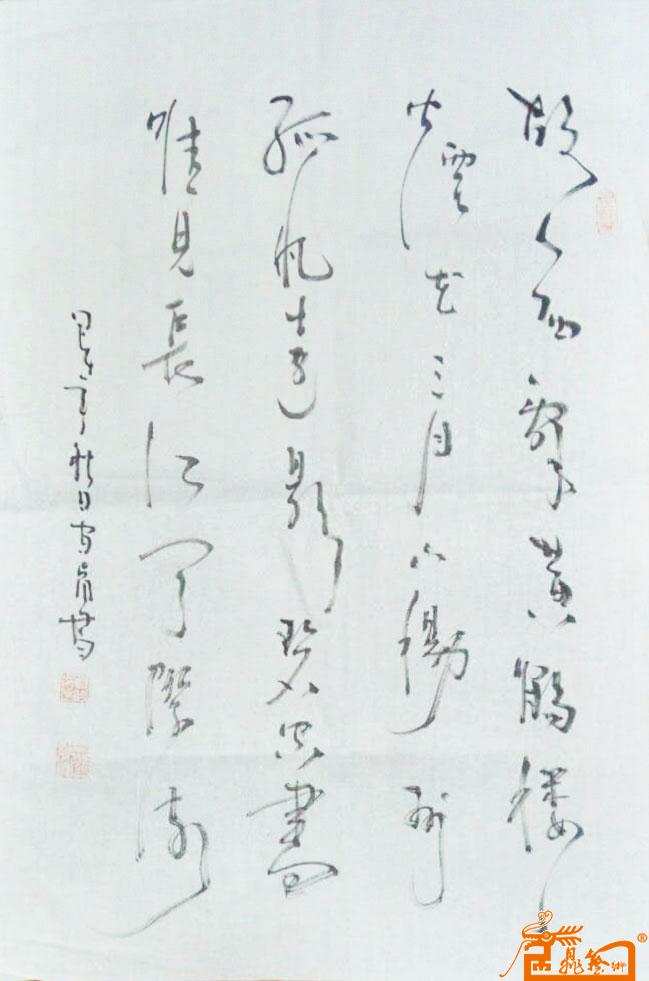 故人西辭黃鶴樓
煙花三月下揚州
孤帆遠影碧空盡
惟見長江天際流
年秋日
®